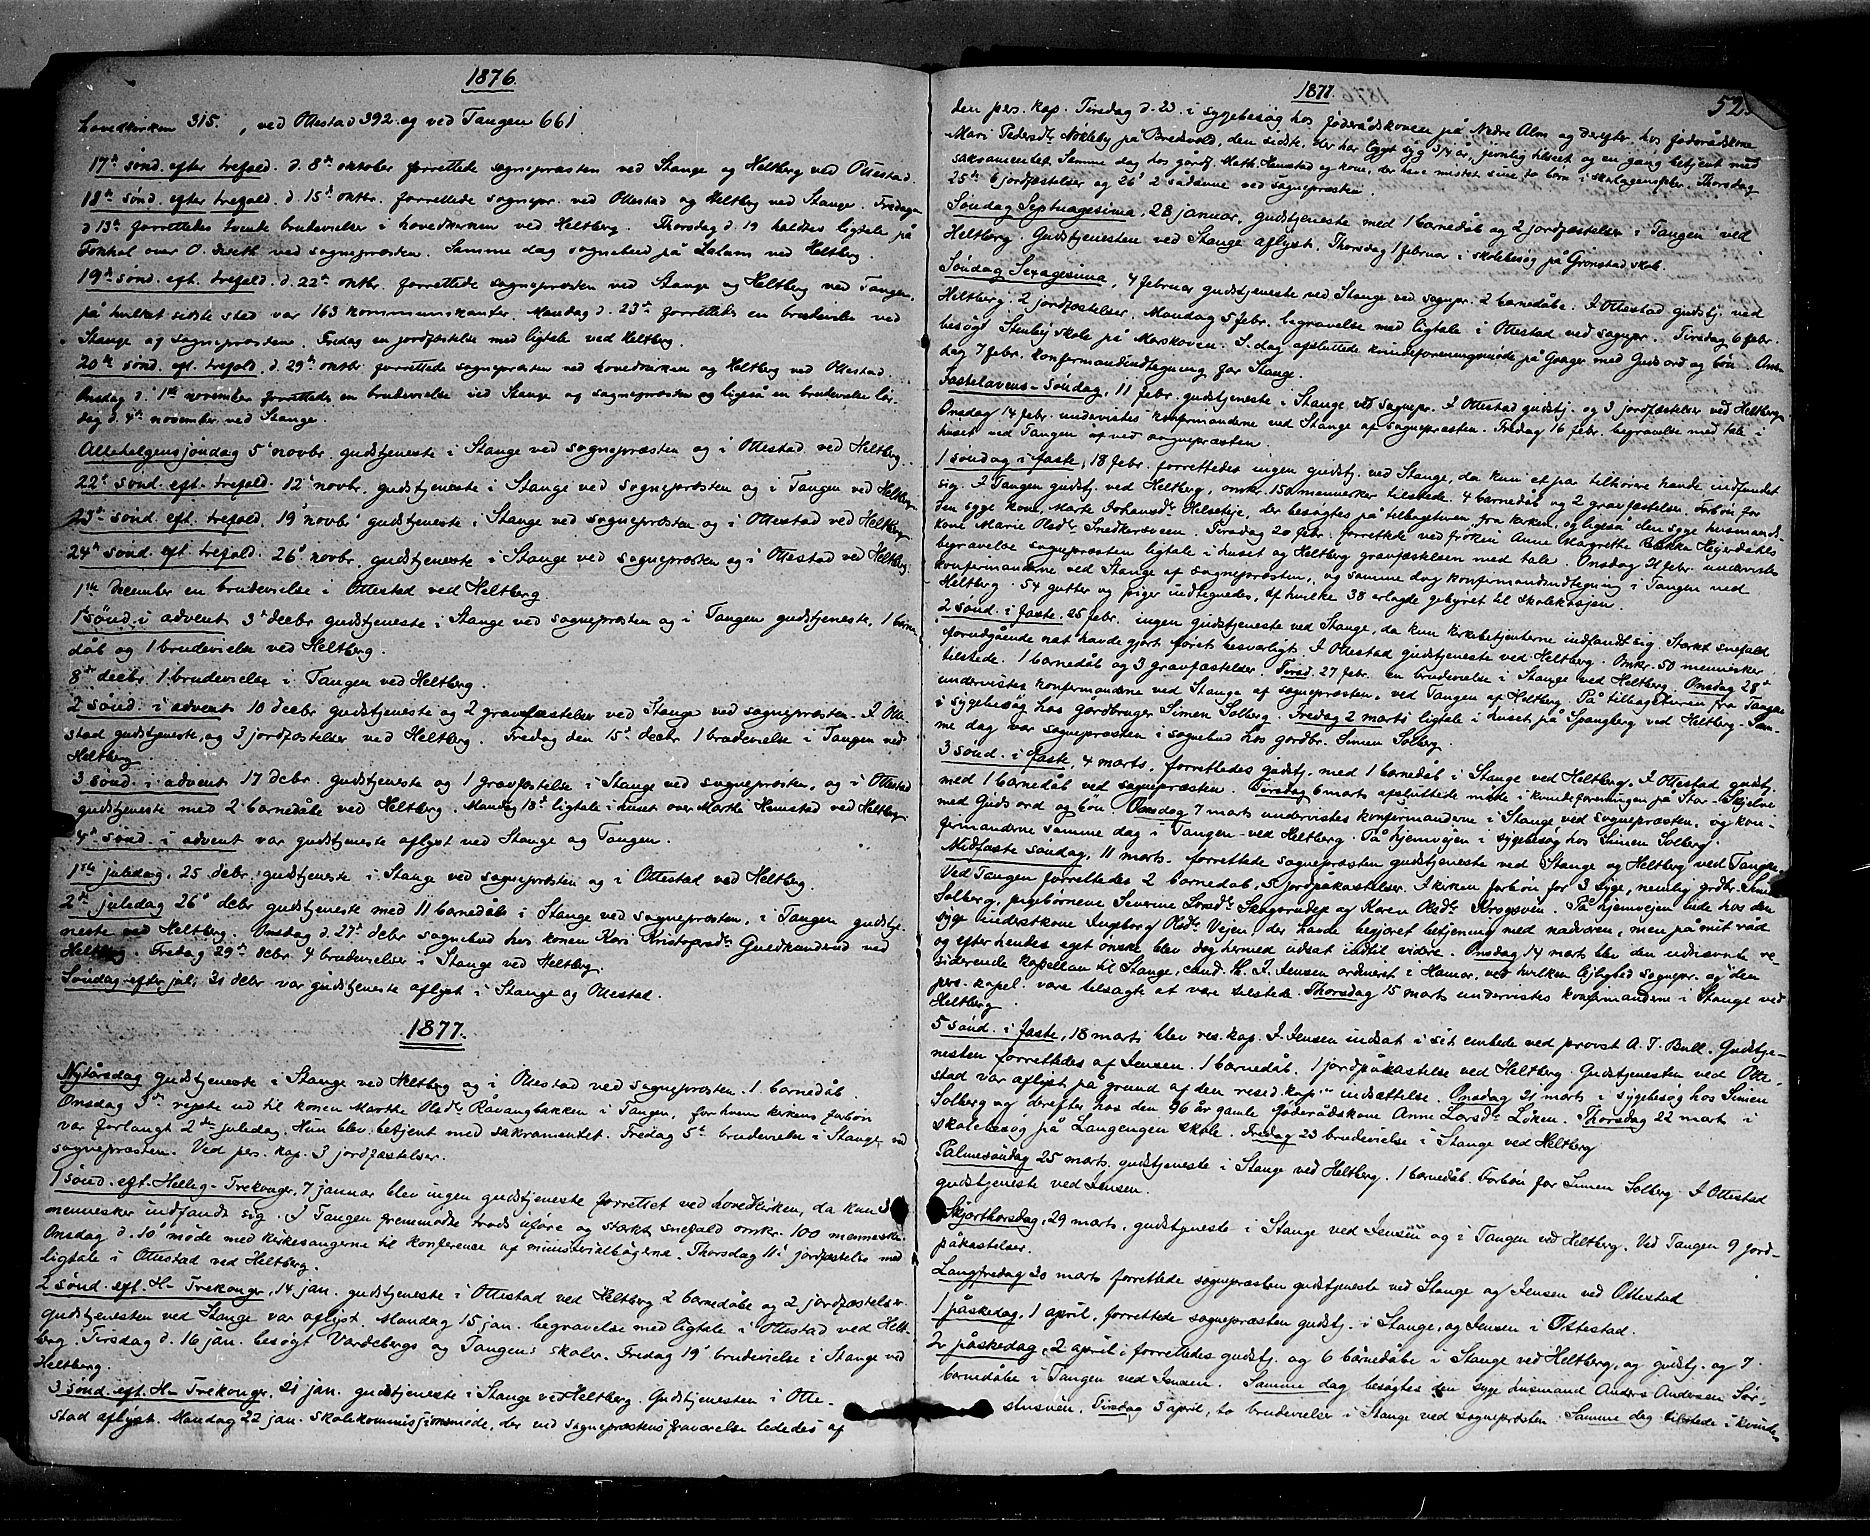 1876.
hovedkirken 315. , ved Ottestad 392 og ved Tangen 661.
17de sønd. efter trefold. d. 8de oktober forrettede sognepræsten ved Stange og Heltberg ved Ottestad.
18de sønd. efter trefold. d. 15de oktbr. forrettede sognepr. ved Ottestad og Heltberg ved Stange. Fredagen
d 13de forrettedes tvende brudevielser i hovedkirken ved Heltberg. Thorsdag d. 19 holdtes ligtale på
Fokhol over O. ved sognepræsten. Samme dag sognebud på ved Heltberg.
19de sønd. eft. trefold. d. 22de oktbr. forrettede sognepræsten ved Stange og Heltberg ved Tangen,
på hvilket sidste sted var 163 kommunikanter. Mandag d. 23de forrettedes en brudevielse ved
Stange af sognepræsten. Fredag en jordfæstelse med ligtale ved Heltberg.
20de sønd. eft. trefold. d. 29de oktbr. forrettede sognepræsten ved hovedkirken og Heltberg ved Ottestad.
Onsdag d. 1ste november forrettedes en brudevielse ved Stange af sognepræsten og ligeså en brudevielse lør-
dag d. 4de november ved Stange.
Allehelgensøndag 5te novbr. gudstjeneste i Stange ved sognepræsten og i Ottestad ved Heltberg.
22de sønd. eft. trefold. 12te novbr. gudstjeneste i Stange ved sognepræsten og i Tangen ved Heltberg.
23de sønd. eft. trefold. 19de novbr gudstjeneste i Stange ved sognepræsten og i Ottestad ved Heltberg.
24de sønd. eft. trefold. 26de novbr. gudstjeneste i Stange ved sognepræsten og i Ottestad ved Heltberg.
1ste December en brudevielse i Ottestad ved Heltberg.
1ste sønd. i advent 3de decbr gudstjeneste i Stange ved sognepræsten og i Tangen gudstjeneste, 1 barne
dåb og 1 brudevielse ved Heltberg.
8de decbr. 1 brudevielse i Tangen ved Heltberg.
2 sønd. i advent 10 decbr gudstjeneste og 2 gravfæstelser ved Stange ved sognepræsten. I Otte-
stad gudstjeneste, og 3 jordfæstelser ved Heltberg. Fredag den 15de decbr 1 brudevielse i Tangen ved
Heltberg.
3 sønd. i advent 17 decbr. gudstjeneste og 1 gravfæstelse i Stange ved sognepræsten, og i Ottestad
gudstjeneste med 2 barnedåbe ved Heltberg. Mandag 18de ligtale i huset over Marthe Hemstad ved Heltberg.
4de sønd. i advent var gudstjeneste aflyst ved Stange og Tangen.
1ste juledag, 25 decbr. gudstjeneste i Stange ved sognepræsten og i Ottestad ved Heltberg.
2den juledag 26de decbr gudstjeneste med 11 barnedåb i Stange ved sognepræsten, i Tangen gudstje-
neste ved Heltberg. Onsdag d. 27de decbr sognebud hos konen Kari Kristofersdtr. ved
Heltberg. Fredag 29de decbr. 4 brudevielser i Stange ved Heltberg.
Søndag efter jul, 31 decbr var gudstjeneste aflyst i Stange og Ottestad.
1877.
Nytårsdag gudstjeneste i Stange ved Heltberg og i Ottestad ved sognepræsten. 1 barnedåb.
Onsdag 3de rejste ud til konen Marthe Olsdtr Råvangbakken i Tangen, for hvem kirkens forbøn
var forlangt 2den juledag. Hun blev betjent med sakramentet. Fredag 5te brudevielse i Stange ved
sognepræsten. Ved pers. kap. 3 jordfæstelser.
1 sønd. eft. Hellig-Trekonger, 7 januar blev ingen gudstjeneste forrettet ved hovedkirken, da kun 3
mennesker indfandt sig. I Tangen fremmødte trods uføre og stærkt snefald omkr. 100 mennesker.
Onsdag d. 10de møde med kirkesangerne til konference af ministerialbøgerne. Thorsdag 11te jordfæstelse med
ligtale i Ottestad ved Heltberg.
2 sønd. eft. H- Trekonger, 14 jan. gudstjeneste i Ottestad ved Heltberg 2 barnedåbe og 2 jordfæstelser.
Gudstjenesten ved Stange var aflyst. Mandag 15 jan. begravelse med ligtale i Ottestad ved Helt-
berg. Tirsdag d. 16 jan. besøgt Vardebergs og Tangens skoler. Fredag 19de brudevielse i Stange ved
Heltberg.
3 sønd. eft. H- Trekonger, 21 jan. gudstjeneste i Stange ved Heltberg. Gudstjenesten i Otte-
stad aflyst. Mandag 22 jan. skolekommissionsmøde, der ved sognepræstens fraværelse lededes af
1877.
52.
den pers. kap. Tirsdag d. 23. i sygebesøg hos føderådskonen på Nedre Alm og derefter hos føderådskone
Mari Pedersdtr Nökleby på Bredvold, den sidste, der har ligget syg 3/4 år, jevnlig tilseet og en gang betjent med
sakramentet. Samme dag hos gårdf. Math. Hemstad og kone, der have mistet sine to børn i skarlagensfeber. Thorsdag
25de 6 jordfæstelser og 26de 2 sådanne ved sognepræsten.
Søndag Septuagesima, 28 januar, gudstjeneste med 1 barnedåb og 2 jordfæstelser i Tangen ved
Heltberg. Gudstjenesten ved Stange aflyst. Thorsdag 1 februar i skolebesøg på Grønstad skole.
Søndag Sexagesima, 4 februar gudstjeneste ved Stange ved sognepr. 2 barnedåbe. I Ottestad gudstj. ved
Heltberg. 2 jordfæstelser. Mandag 5 febr. begravelse med ligtale i Ottestad ved sognepr. Tirsdag 6 febr.
besøgt Stenbej skole på Morskoven. S. dag afsluttede kvindeforeningsmøde på Gaager med Guds ord og bøn. Ons-
dag 7 febr. konfirmandindtegning for Stange.
Fastelavens-søndag, 11 febr. gudstjeneste i Stange ved sognepr. I Ottestad gudstj. og 3 jordfæstelser ved Heltberg.
Onsdag 14 febr. undervistes konfirmanderne ved Stange af sognepræsten. Fredag 16 febr. begravelse med tale i
huset ved Tangen af ved sognepræsten.
1 søndag i faste, 18 febr. forrettedes ingen gudstj. ved Stange, da kun et par tilhørere havde indfundet
sig. I Tangen gudstj. ved Heltberg, omkr. 150 mennesker tilstede. 4 barnedåb og 2 gravfæstelser. Forbøn for
den syge kone Marte Johansdtr Helseteje, der besøgtes på tilbageturen fra kirken, og ligeså den syge husmands-
kone Marie Olsdtr Snedkersveen. Tirsdag 20 febr. forrettede ved frøken Anne Margrethe Heyerdahls
begravelse sognepræsten ligtale i huset og Heltberg gravfæstelsen med tale. Onsdag 21 febr. undervistes
konfirmanderne ved Stange af sognepræsten, og samme dag konfirmandindtegning i Tangen ved
Heltberg. 54 gutter og piger indtegnedes, af hvilke 38 erlagde gebyret til skolekassen.
2 sønd. i faste. 25 febr. ingen gudstjeneste ved Stange, da kun kirkebetjenterne indfandt sig. Stærkt snefald
forudgående nat havde gjort føret besværligt. I Ottestad gudstjeneste ved Heltberg. Omkr. 50 mennesker
tilstede. 1 barnedåb og 3 gravfæstelser. Tirsd. 27 febr. en brudevielse i Stange ved Heltberg. Onsdag 28de
undervistes konfirmanderne ved Stange af sognepræsten, ved Tangen af Heltberg. På tilbageturen fra Tangen
i sygebesøg hos gårdbruger Simen Solberg. Fredag 2 marts ligtale i huset på Spangberg ved Heltberg. Sam-
me dag var sognepræsten i sognebud hos gårdbr. Simen Solberg.
3 sønd. i faste, 4 marts, forrettedes gudstj. med 1 barnedåb i Stange ved Heltberg. I Ottestad gudstj.
med 1 barnedåb ved sognepræsten. Tirsdag 6 marts afsluttede møde i kvindeforeningen på Stor-Skjelve
med Guds ord og bøn. Onsdag 7 marts undervistes konfirmanderne i Stange ved sognepræsten, og kon-
firmanderne samme dag i Tangen ved Heltberg. På hjemvejen i sygebesøg hos Simen Solberg.
Midfaste søndag, 11 marts. forrettede sognepræsten gudstjeneste ved Stange og Heltberg ved Tangen.
Ved Tangen forrettedes 2 barnedåb, 5 jordpåkastelser. I kirken forbøn for 3 syge, nemlig grdbr. Simen
Solberg, pigebørnene Severine Larsdtr og Karen Olsdtr Krogsveen. På hjemvejen inde hos den
syge inderstkone Ingeborg Olsdtr Vejen der havde begjæret betjening med nadveren, men på mit råd
og efter hendes eget ønske blev dog hermed udsat indtil videre. Onsdag 14 marts blev den udnævnte re-
siderende kapellan til Stange, cand. Th. J. Jensen ordineret i Hamar, ved hvilken lejlighed sognepr. og den
pers. kapel. vare tilsagte at være tilstede. Thorsdag 15 marts undervistes konfirmanderne i Stange ved
Heltberg.
5 sønd. i faste, 18 marts blev res. kap. J. Jensen indsat i sit embede ved provst A. T. Bull. Gudstje-
nesten forrettedes af Jensen. 1 barnedåb. 1 jordpåkastelse ved Heltberg. Gudstjenesten ved Otte-
stad var aflyst på grund af den resid. kap.s indsættelse. Onsdag 21 marts i sygebesøg hos Simen
Solberg og derefter hos den 96 år gamle føderådskone Anne Larsdtr Løken. Thorsdag 22 mart i
skolebesøg på Langengen skole. Fredag 23 brudevielse i Stange ved Heltberg
Palmesøndag 25 marts. gudstjeneste i Stange ved Heltberg. 1 barnedåb. Forbøn for Simen Solberg. I Ottestad
gudstjeneste ved Jensen.
Skjærthorsdag, 29 marts, gudstjeneste i Stange ved Jensen og i Tangen ved Heltberg. Ved Tangen 9 jord-
påkastelser.
Langfredag 30 marts forrettede sognepræsten gudstjeneste ved Stange og Jensen ved Ottestad
1 påskedag, 1 april, forrettede sognepræsten gudstj. i Stange, og Jensen i Ottestad.
2. påskedag, 2 april forrettedes gudstj. og 6 barnedåbe i Stange ved Heltberg, og gudstj. og 7
barnedåbe i Tangen ved Jensen. Samme dag besøgtes den syge husmand Anders Andersen Sør-
stusveen. Tirsdag 3 april, to brudevielser i Stange ved sognepræsten. Samme dag tilstede i kvinde-